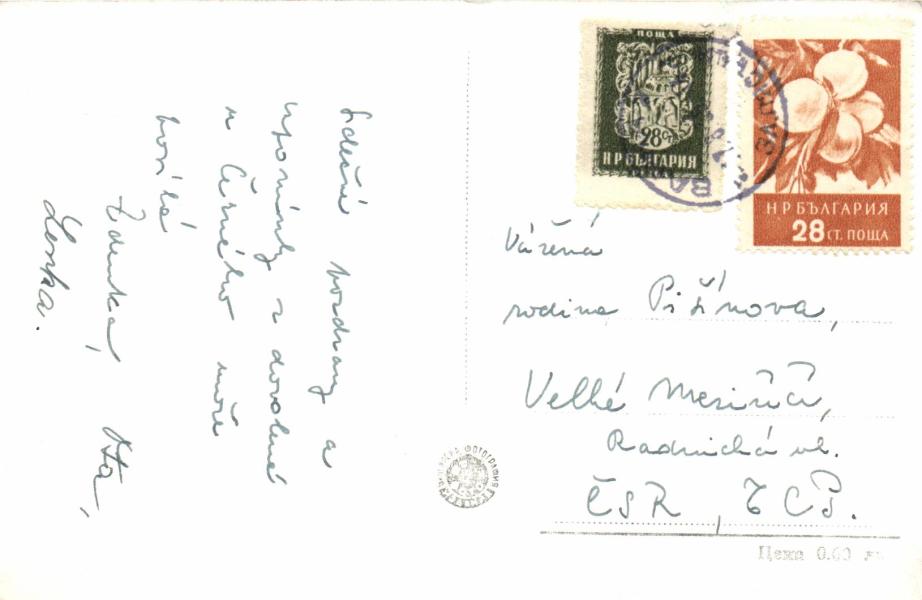 Srdečné pozdravy a
upomínky z dovolené
u Černého moře
posílá
Zdenka, Ota,
Lenka.
ПОЩА
28 СТ.
НР БЪЛГАРИЯ
НР БЪЛГАРИЯ
28 СТ. ПОЩА
Vážená
rodina Pižínova,
Velké Meziříčí,
Radnická ul.
ČSR, ЧСР.
Цена 0.60 лв.